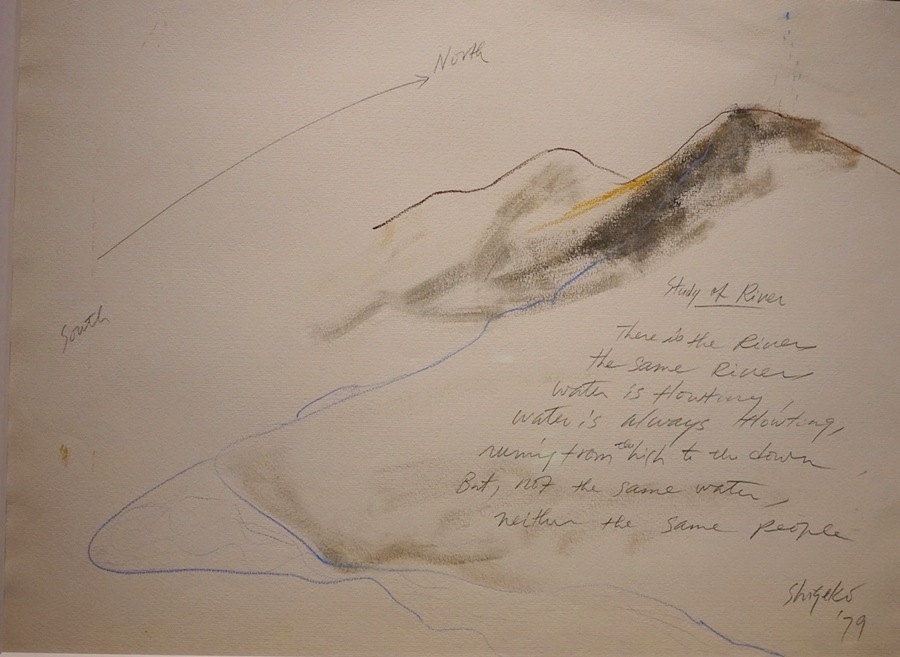 North
South
Study of River
There is the River
the same River
water is flowing,
water is always flowing,
runing from the high to the down
But, not the same water,
neither the same people
Shigeko
'79